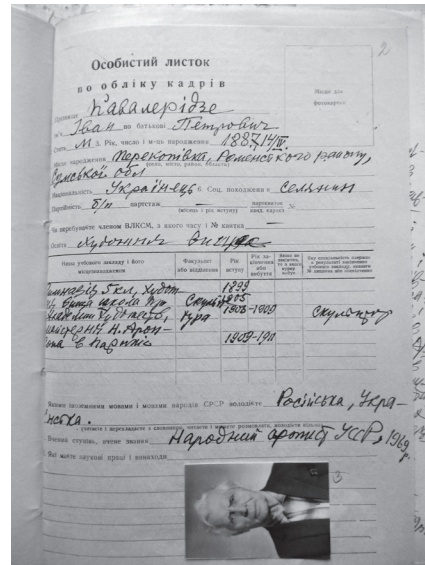 2
Особистий листок
по обліку кадрів
Місце для
фотокартки
Прізвище Кавалерідзе
ім'я Іван по батькові Петрович
Стать М 3. Рік, число і м-ць народження 1887 14/IV.
Місце народження Перекопівка, Роменського району,
(село, місто, район, область)
Сумської обл
Національність Українець 6. Соц. походження Селянин
Партійність б/п партстаж — партквиток №
(місяць і рік вступу)
Чи перебуваєте членом ВЛКСМ, з якого часу і № квитка —
Освіта Художник
Назва учбового закладу і його місцезнаходження
Факультет або відділення
Рік вступу
Рік закінчення або вибуття
5 кл, Худож 1899
школа при Скульп 1905
Академії Художеств, тура 1906-1909 Скульптор
Н. Арон-
в Парижі 1909-1911
Якими іноземними мовами і мовами народів СРСР володієте Російська, Укра-
їнська.
Вчений ступінь, вчене звання Народний артист УССР, 1969
р.
Які маєте наукові праці і винаходи
3